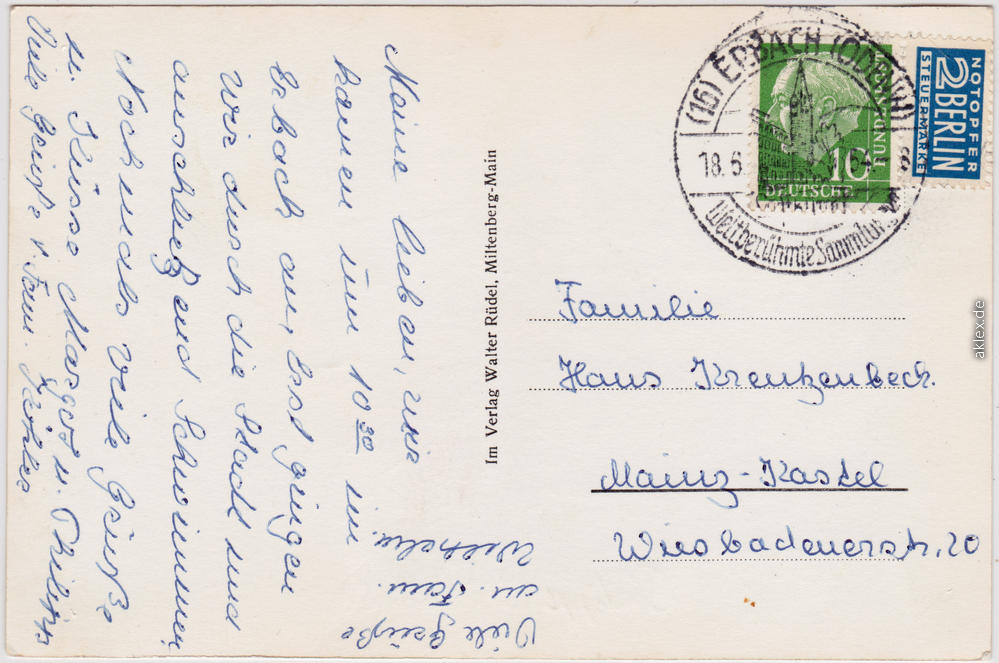 Meine Lieben, wir
kamen um 10 30 in
Erbach an, erst gingen
wir durch die Stadt und
anschließend Schwimmen
Nochmals viele Grüße
u. Küsse Margot u. Philipp
Viele Grüße v. Fam. Köhler
Viele Grüße
an Fam.
Wilhelm.
Im Verlag Walter Rüdel, Miltenberg-Main
(16) ERBACH (ODENW)
18.6.
Weltberühmte Sammlun
DEUTSCHE
BUND
10
NOTOPFER
2 BERLIN
STEUERMARKE
Familie
Hans Kreutzenbeck.
Mainz-Kastel
Wiesbadenerstr. 20
aklex.de